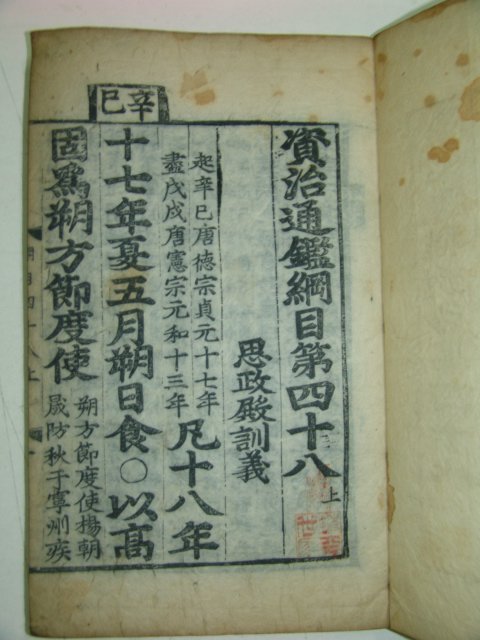 資治通鑑綱目第四十八 上
思政殿訓義
起辛巳唐德宗貞元十七年
盡戊戌唐憲宗元和十三年
凡十八年
辛巳
十七年夏五月朔日食○以高
固爲朔方節度使
朔方節度使楊朝
晟防秋于寧州疾